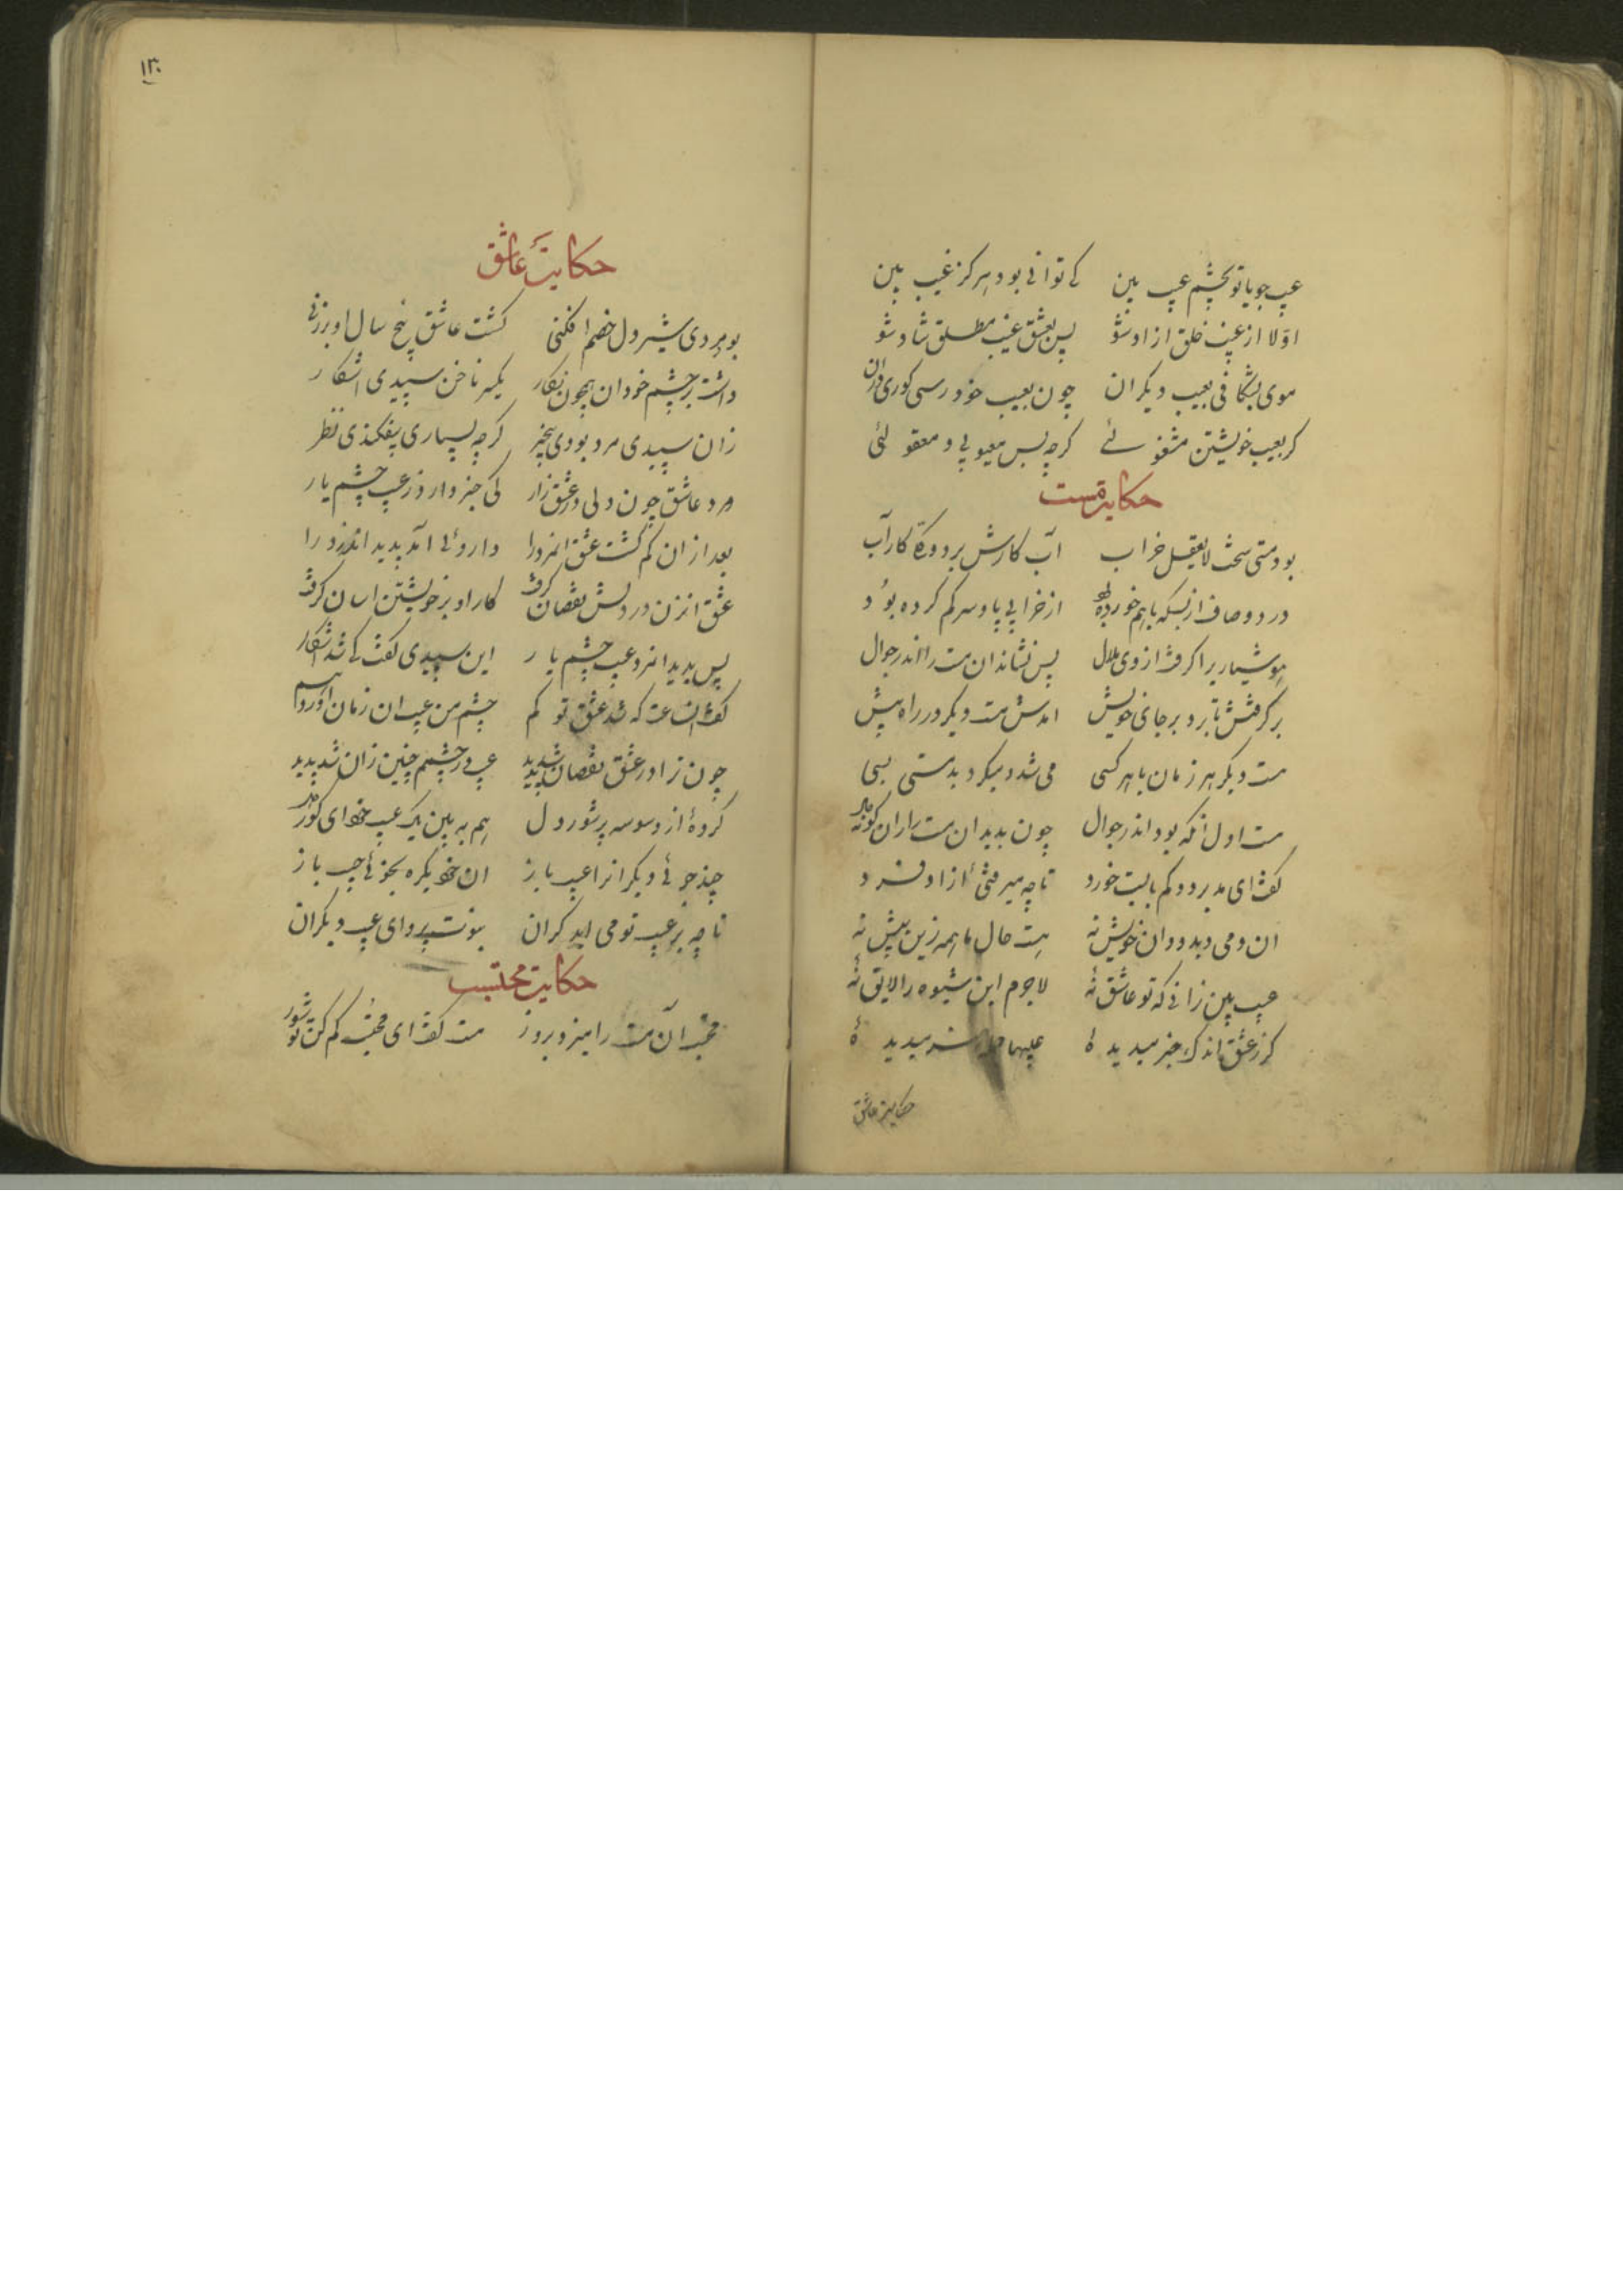 عیب جویا تو بچشم عیب بین کے توانی بود هرکز غیب بین
اوّلا از عیب خلق ازاد شو پس بعشق غیب مطلق شاد شو
موی بشکافی بعیب دیکران چون بعیب خود رسی کوری دران
کر بعیب خویشتن مشغولئے کرچه بس معیوبی و مقبولئی
حکایت مست
بود مستی سخت لایعقل خراب آب کارش برده کار آب
درد و صاف از بسکه باهم خورده بود از خرابی پا و سر کم کرده بود
هوشیاریرا کرفت از وی ملال پس نشاند ان مست را اندر جوال
برکرفتش تا برد بر جای خویش امدش مست دیکر در راه پیش
مست دیکر هر زمان با هر کسی می شد و میکرد بدمستی بسی
مست اول انکه بود اندر جوال چون بدید ان مست را
کفت ای مدبر دو کم بایست خورد تا چه من میرفتی ازاد و فرد
ان و می دید و ان خویش نه هست حال ما همه زین بیش نه
عیب بین زانی که تو عاشق نهٔ لاجرم این شیوه را لایق نهٔ
کر ز عشق اندک خبر میدیدهٔ عیبها میدیدهٔ
حکایت عاشق
۱۳۰
حکایت عاشق
بود مردی شیردل خصم افکنی کشت عاشق پنج سال او بر زنی
داشت بر چشم خود ان همچون نکار یکسر ناخن سپیدی اشکار
زان سپیدی مرد بودی بیخبر کرچه بسیاری بیفکندی نظر
مرد عاشق چون بود در عشق زار کی خبر دارد ز عیب چشم یار
بعد از ان کم کشت عشق انمرد را داروئی آمد پدید اندرد را
عشق انزن در دلش نقصان کرفت کار او بر خویشتن اسان کرفت
پس بدید انمرد عیب چشم یار این سپیدی کفت کے شد اشکار
کفت ان ساعت که شد عشق تو کم چشم من عیب ان زمان اورد هم
چون ترا در عشق نقصان شد پدید عیب در چشمم چنین زان شد پدید
کردهٔ از وسوسه پر شور دل هم ببین یک عیب خود ای کور دل
چند جوئی دیکرانرا عیب باز ان خود یکره بجوئی جیب باز
تا چه بر عیب تو می اید کران نبودت پروای عیب دیکران
حکایت محتسب
محتسب آن مست را میزد بزور مست کفت ای محتسب کم کن تو شور